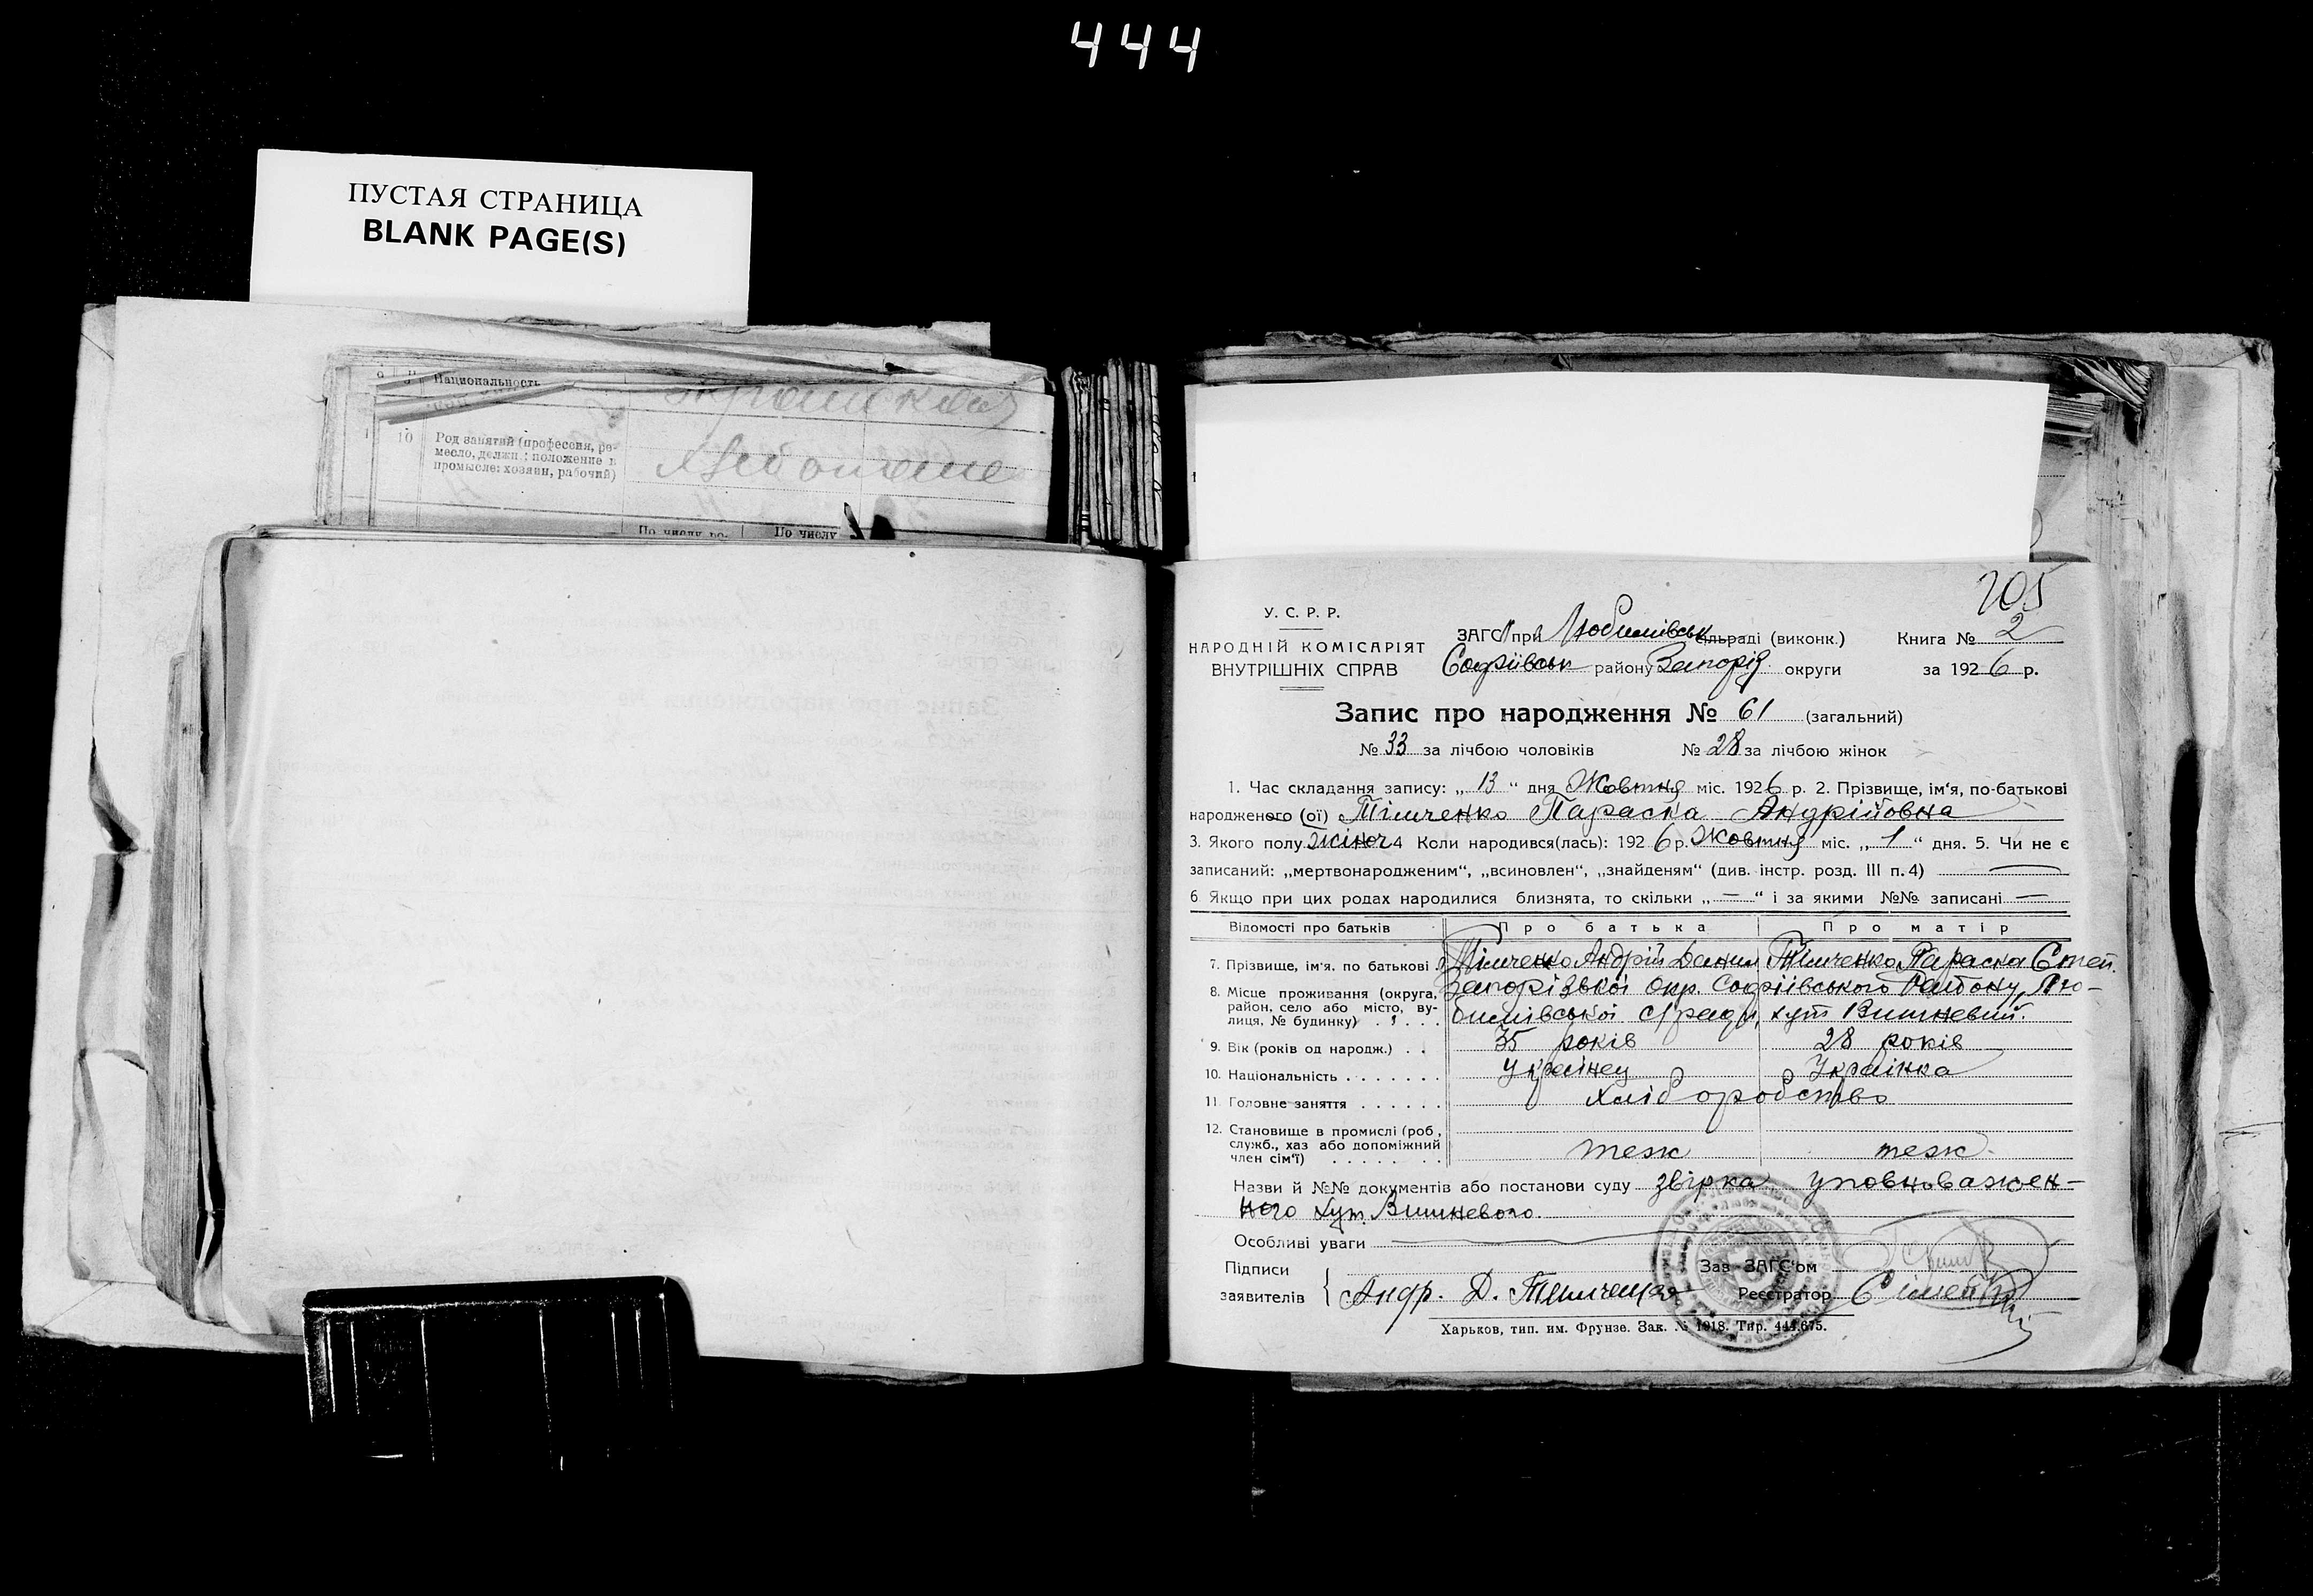 444
ПУСТАЯ СТРАНИЦА
BLANK PAGE(S)
Национальность
10 Род занятий (професеия, ре-
месло, должн.: положение в
промысле: хозяин, рабочий)
По числу По числу
205
У. С. Р. Р.
НАРОДНІЙ КОМІСАРІЯТ
ВНУТРІШНІХ СПРАВ
ЗАГС при Любимівськ сільраді (виконк.) Книга № 2
Софіївськ району Запоріз. округи за 1926 р.
Запис про народження № 61 (загальний)
№ 33 за лічбою чоловіків № 28 за лічбою жінок
1. Час складання запису: „ 13 “ дня Жовтня міс. 1926 р. 2. Прізвище, ім'я, по-батькові
народженого (ої) Тімченко Параска Андрійовна
3. Якого полу жіноч 4 Коли народився(лась): 1926 р. Жовтня міс. „ 1 “ дня. 5. Чи не є
записаний: „мертвонародженим“, „всиновлен“, „знайденям“ (див. інстр. розд. III п. 4) —
6 Якщо при цих родах народилися близнята, то скільки „ — “ і за якими №№ записані —
Відомості про батьків Про батька Про матір
7. Прізвище, ім'я. по батькові Тімченко Андрій Данил Тімченко Параска Степ.
8. Місце проживання (округа, район, село або місто, ву-
лиця, № будинку) Запорізької окр. Софіївського Району, Лю-
бимівської с/ради, хут Вишневий.
9. Вік (років од народж.) . . 35 років 28 років
10. Національність . . . . . . . Українец Українка
11. Головне заняття . . . . . . Хліборобство
12. Становище в промислі (роб., служб., хаз або допоміжний
член сім'ї) . . . . . . . теж теж
Назви й №№ документів або постанови суду звірка уповноважен-
ного хут. Вишневого
Особливі уваги
Підписи Зав ЗАГС'ом
заявителів { Андр. Д. Реєстратор
Харьков, тип. им. Фрунзе. Зак. № 1918. Тир. 444.675.